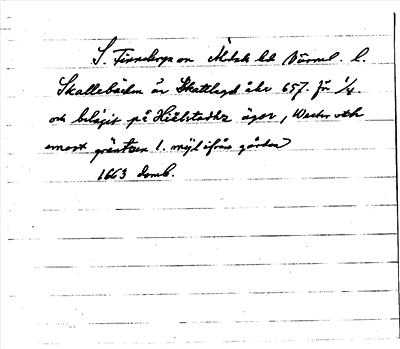 S. Finnskoga sn Älvdals hd Värml. l.
Skallebäcken är Skattlagd åhr 657. för 1/4
och belägit på Hiälstadhz ägor, Wester och
emot gräntzen 1. mijl ifrån gården
1663 domb.